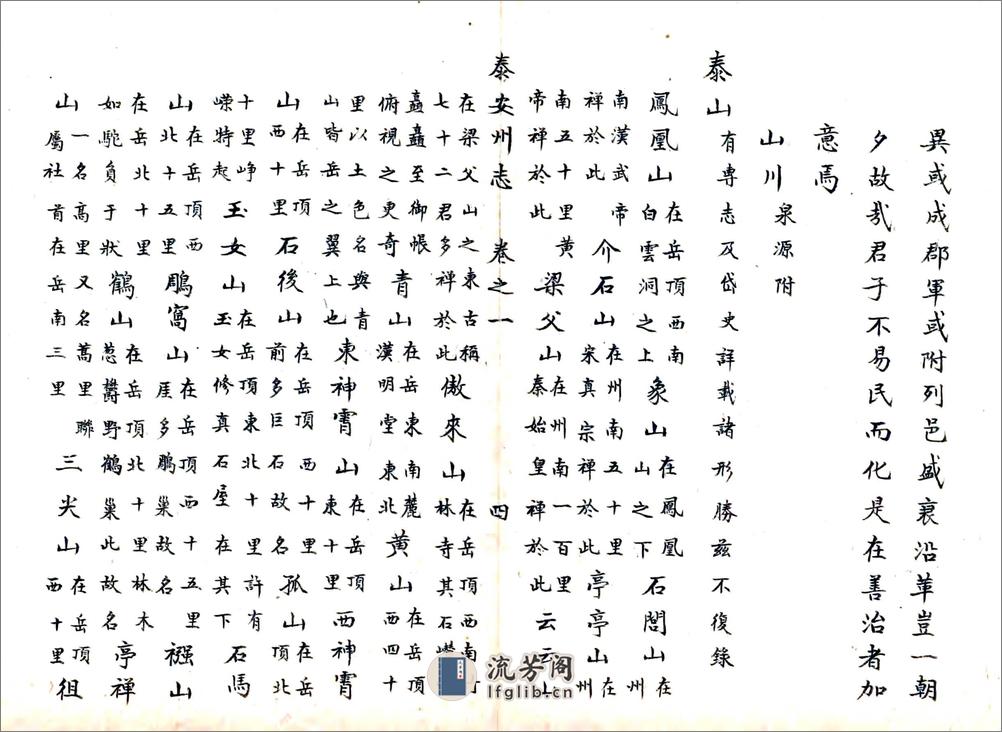 異或成郡軍或附列邑盛衰沿革豈一朝
夕故哉君子不易民而化是在善治者加
意焉
山川泉源附
泰山有專志及岱史詳載諸形勝茲不復錄
鳳凰山在岳頂西南白雲洞之上象山在鳳凰山之下石閭山在州
南漢武帝禪於此介石山在州南五十里宋真宗禪於此亭亭山在州
南五十里黃帝禪於此梁父山在州南一百里秦始皇禪於此云云山
泰安州志 卷之一 四
在梁父山之東古稱七十二君多禪於此傲來山在岳頂西南林寺其石
矗矗至御帳俯視之更奇青山在岳東南麓漢明堂東北黃山在岳頂西四十
里以土色名與青山皆岳之翼上也東神霄山在岳頂東十里西神霄
山在岳頂西十里石後山在岳頂西十里前多巨石故名孤山在岳頂北
十里崢嶸特起玉女山在岳頂東北十里許有玉女修真石屋在其下石馬
山在岳頂西北十五里鵰窩山在岳頂西十五里崖多鵰巢故名襁山
在岳北十里如駝負于狀鶴山在岳頂北十里林木蔥鬱野鶴巢此故名亭禪
山一名高里又名蒿里聯屬社首在岳南三里三尖山在岳頂西十里徂
流芳阁
lfglib.cn